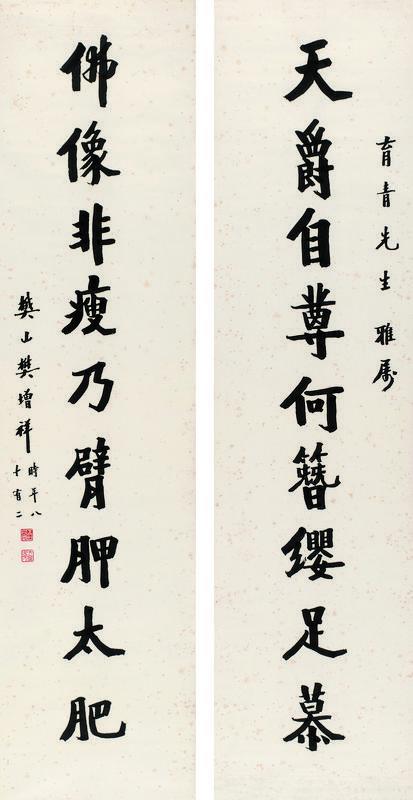 育青先生雅属
天爵自尊何簪纓足慕
佛像非瘦乃臂胛太肥
樊山樊增祥
時年八
十有二